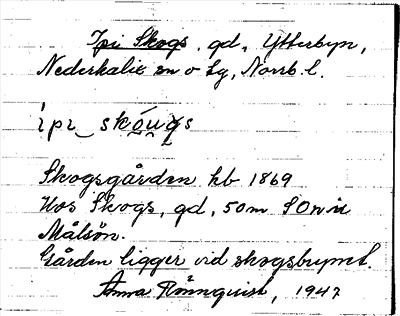 Ipi Skogs, gd, Ytterbyn,
Nederkalix sn o lg, Norrb. l.
ipi skougs
Skogsgården hb 1869
Hos Skogs, gd, 50 m SO n ii
Målsön.
Gården ligger vid skogsbrynet.
Anna Rönnqvist, 1947